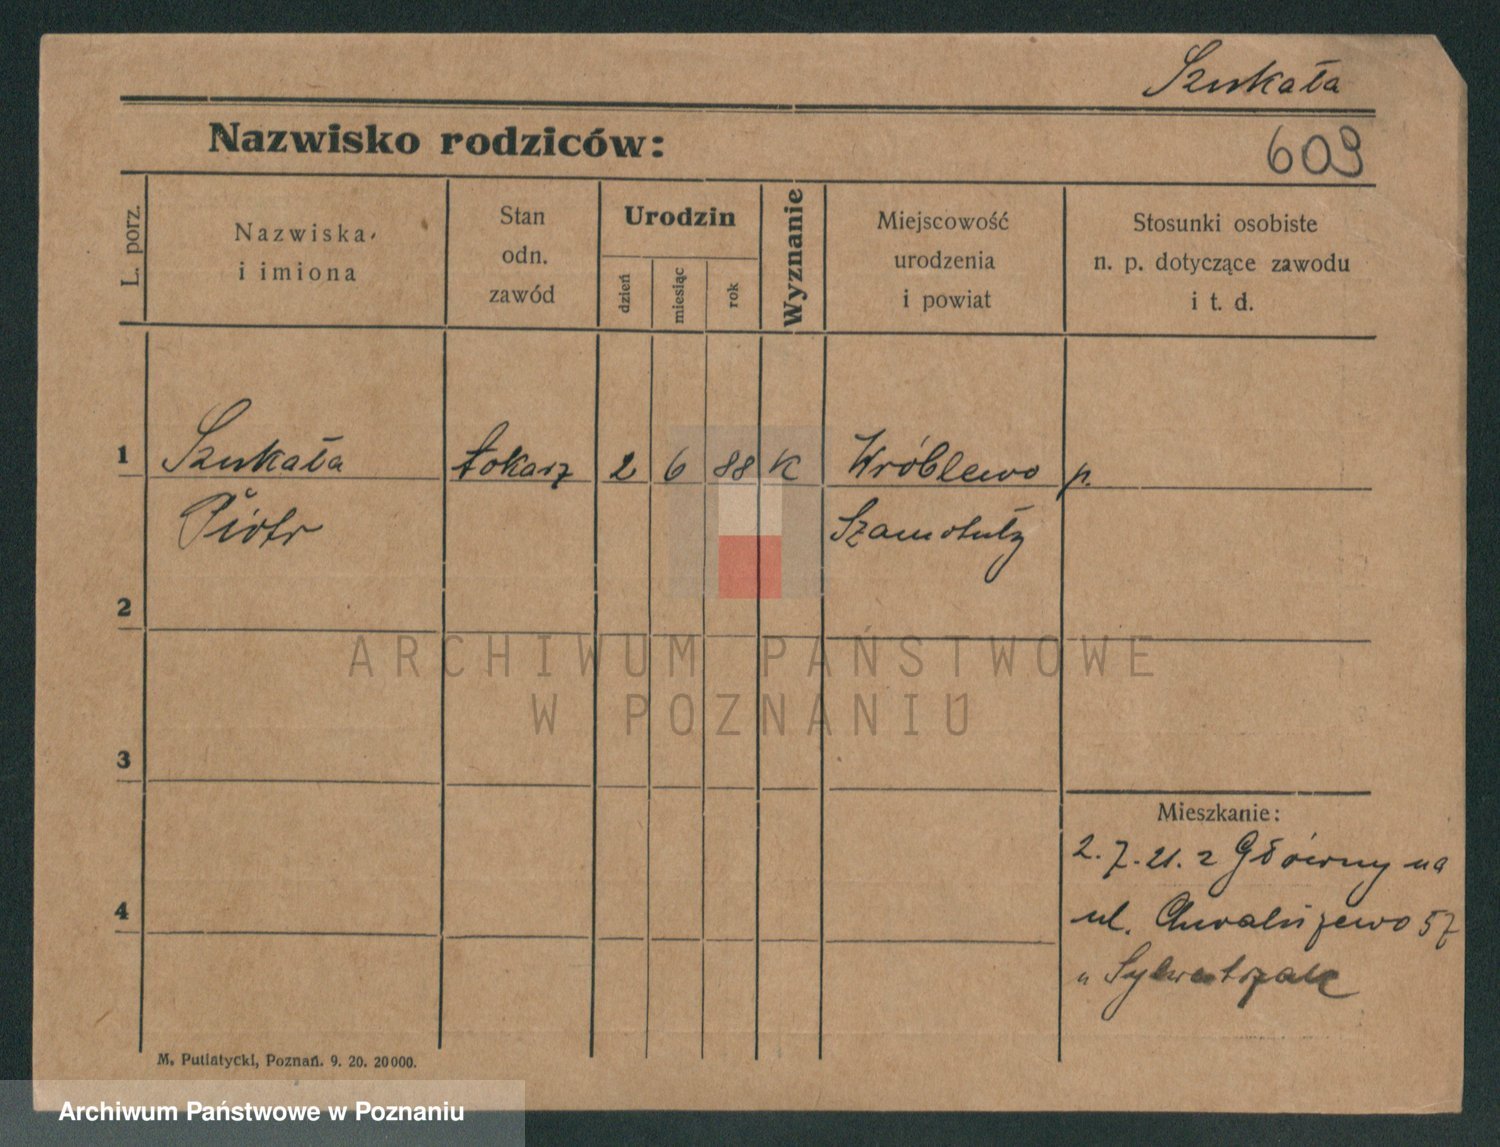 Szukała
Nazwisko rodziców:
609
L. porz.
Nazwiska
i imiona
Stan
odn.
zawód
Urodzin
dzień
miesiąc
rok
Wyznanie
Miejscowość
urodzenia
i powiat
Stosunki osobiste
n. p. dotyczące zawodu
i t. d.
1 Szukała tokarz 2 6 88 K Wróblewo p.
Piotr Szamotuły
2
ARCHIWUM PAŃSTWOWE
W POZNANIU
3
Mieszkanie:
2.7.21. z Główny na
4
ul. Chwaliszewo 57
u Sylwestrzak
M. Putiatycki, Poznań. 9. 20. 20000.
Archiwum Państwowe w Poznaniu